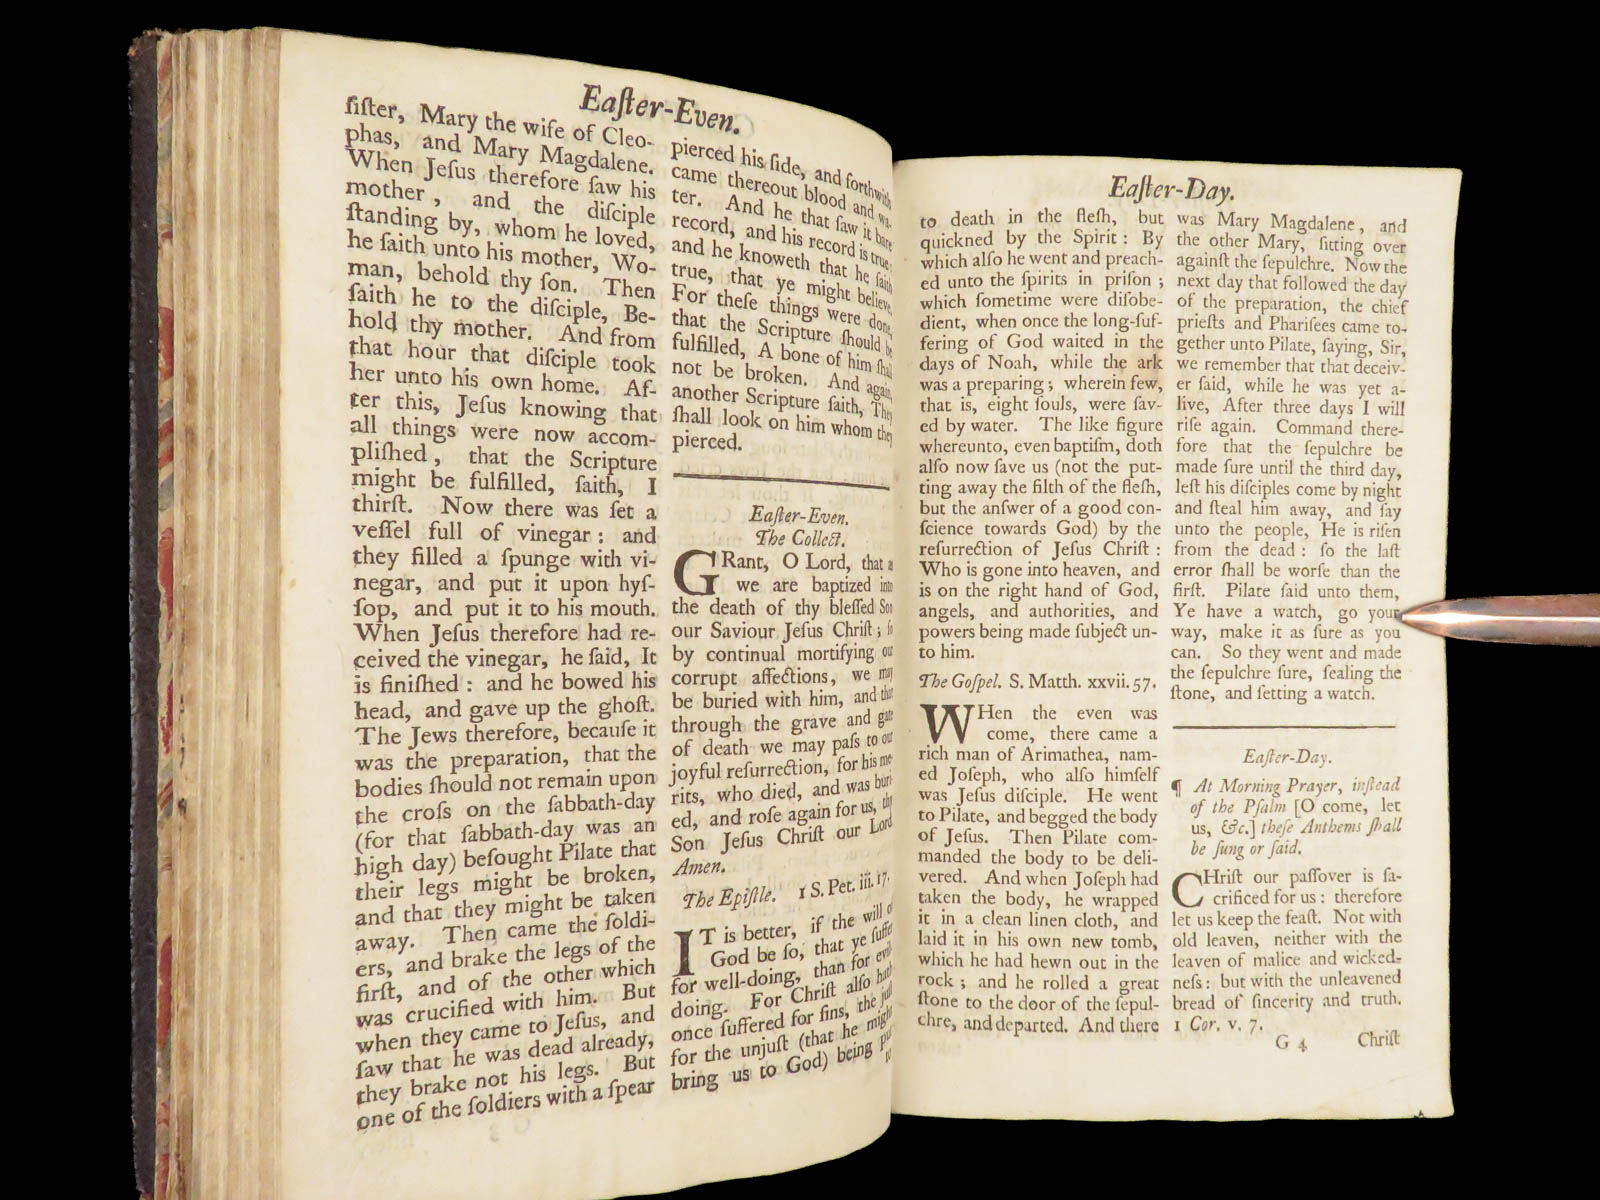 Eaſter-Even.
ſiſter, Mary the wife of Cleo-
phas, and Mary Magdalene.
When Jeſus therefore ſaw his
mother, and the diſciple
ſtanding by, whom he loved,
he ſaith unto his mother, Wo-
man, behold thy ſon. Then
ſaith he to the diſciple, Be-
hold thy mother. And from
that hour that diſciple took
her unto his own home. Af-
ter this, Jeſus knowing that
all things were now accom-
pliſhed, that the Scripture
might be fulfilled, ſaith, I
thirſt. Now there was ſet a
veſſel full of vinegar: and
they filled a ſpunge with vi-
negar, and put it upon hyſ-
ſop, and put it to his mouth.
When Jeſus therefore had re-
ceived the vinegar, he ſaid, It
is finiſhed: and he bowed his
head, and gave up the ghoſt.
The Jews therefore, becauſe it
was the preparation, that the
bodies ſhould not remain upon
the croſs on the ſabbath-day
(for that ſabbath-day was an
high day) beſought Pilate that
their legs might be broken,
and that they might be taken
away. Then came the ſoldi-
ers, and brake the legs of the
firſt, and of the other which
was crucified with him. But
when they came to Jeſus, and
ſaw that he was dead already,
they brake not his legs. But
one of the ſoldiers with a ſpear
pierced his ſide, and forthwith
came thereout blood and wa-
ter. And he that ſaw it bare
record, and his record is true:
and he knoweth that he ſaith
true, that ye might believe.
For theſe things were done,
that the Scripture ſhould be
fulfilled, A bone of him ſhall
not be broken. And again,
another Scripture ſaith, They
ſhall look on him whom they
pierced.
Eaſter-Even.
The Collect.
GRant, O Lord, that a
we are baptized into
the death of thy bleſſed Son
our Saviour Jeſus Chriſt; ſo
by continual mortifying our
corrupt affections, we may
be buried with him, and that
through the grave and gate
of death we may paſs to our
joyful reſurrection, for his me-
rits, who died, and was buri-
ed, and roſe again for us, thy
Son Jeſus Chriſt our Lord
Amen.
The Epiſtle. 1 S. Pet. iii. 17.
IT is better, if the will of
God be ſo, that ye ſuffer
for well-doing, than for evil-
doing. For Chriſt alſo hath
once ſuffered for ſins, the juſt
for the unjuſt (that he might
bring us to God) being put
to
Eaſter-Day.
to death in the fleſh, but
quickned by the Spirit: By
which alſo he went and preach-
ed unto the ſpirits in priſon;
which ſometime were diſobe-
dient, when once the long-ſuf-
fering of God waited in the
days of Noah, while the ark
was a preparing; wherein few,
that is, eight ſouls, were ſav-
ed by water. The like figure
whereunto, even baptiſm, doth
alſo now ſave us (not the put-
ting away the filth of the fleſh,
but the anſwer of a good con-
ſcience towards God) by the
reſurrection of Jeſus Chriſt:
Who is gone into heaven, and
is on the right hand of God,
angels, and authorities, and
powers being made ſubject un-
to him.
The Goſpel. S. Matth. xxvii. 57.
WHen the even was
come, there came a
rich man of Arimathea, nam-
ed Joſeph, who alſo himſelf
was Jeſus diſciple. He went
to Pilate, and begged the body
of Jeſus. Then Pilate com-
manded the body to be deli-
vered. And when Joſeph had
taken the body, he wrapped
it in a clean linen cloth, and
laid it in his own new tomb,
which he had hewn out in the
rock; and he rolled a great
ſtone to the door of the ſepul-
chre, and departed. And there
was Mary Magdalene, and
the other Mary, ſitting over
againſt the ſepulchre. Now the
next day that followed the day
of the preparation, the chief
prieſts and Phariſees came to-
gether unto Pilate, ſaying, Sir,
we remember that that deceiv-
er ſaid, while he was yet a-
live, After three days I will
riſe again. Command there-
fore that the ſepulchre be
made ſure until the third day,
leſt his diſciples come by night
and ſteal him away, and ſay
unto the people, He is riſen
from the dead: ſo the laſt
error ſhall be worſe than the
firſt. Pilate ſaid unto them,
Ye have a watch, go your
way, make it as ſure as you
can. So they went and made
the ſepulchre ſure, ſealing the
ſtone, and ſetting a watch.
Eaſter-Day.
¶ At Morning Prayer, inſtead
of the Pſalm [O come, let
us, &c.] theſe Anthems ſhall
be ſung or ſaid.
CHriſt our paſſover is ſa-
crificed for us: therefore
let us keep the feaſt. Not with
old leaven, neither with the
leaven of malice and wicked-
neſs: but with the unleavened
bread of ſincerity and truth.
1 Cor. v. 7.
G 4 Chriſt